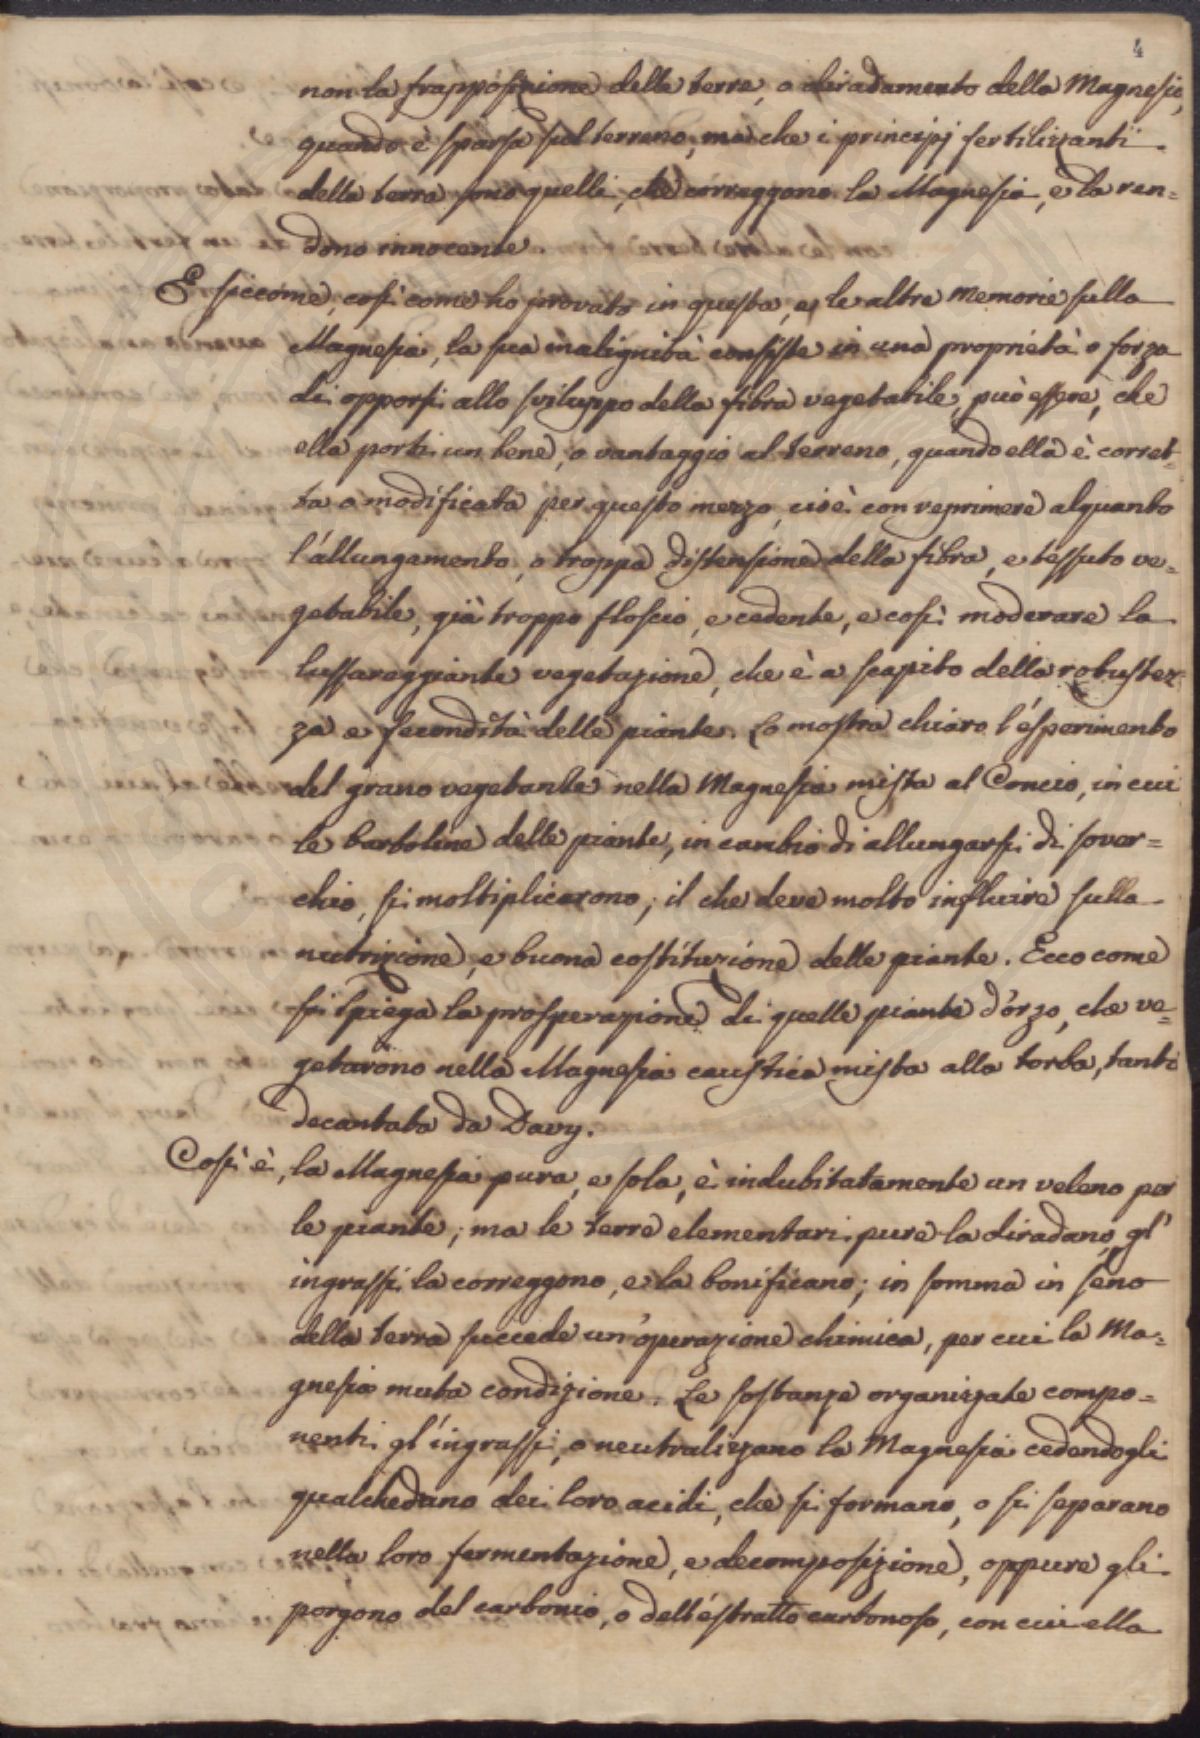 4
non la frapposizione delle terre, o diradamento della Magnesia,
quando è sparsa sul terreno; ma che i principj fertilizzanti
della terra sono quelli, che correggono la Magnesia, e la ren=
dono innocente.
E siccome, così come ho provato in questa, e le altre Memorie sulla
Magnesia, la sua malignità consiste in una proprietà o forza
di opporsi allo sviluppo della fibra vegetabile, può essere, che
ella porti un bene, o vantaggio al terreno, quando ella è corret=
ta o modificata per questo mezzo, cioè con reprimere alquanto
l'allungamento, o troppa distensione della fibra, e tessuto ve=
getabile, già troppo floscio, e cedente, e così moderare la
lussareggiante vegetazione, che è a scapito della robustez=
za e fecondità delle piante. Lo mostra chiaro l'esperimento
del grano vegetante nella Magnesia mista al Concio, in cui
le barboline delle piante, in cambio di allungarsi di sover=
chio, si moltiplicarono; il che deve molto influire sulla
nutrizione, e buona costituzione delle piante. Ecco come
si spiega la prosperazione di quelle piante d'orzo, che ve=
getarono nella Magnesia caustica mista alla torba, tanto
decantata da Davy.
Così è, la Magnesia pura, e sola, è indubitatamente un veleno per
le piante; ma le terre elementari pure la diradano, gl'
ingrassi la correggono, e la bonificano; in somma in seno
della terra succede un'operazione chimica, per cui la Ma=
gnesia muta condizione. Le sostanze organizzate compo=
nenti gl'ingrassi, o neutralizzano la Magnesia cedendogli
qualcheduno dei loro acidi, che si formano, o si separano
nella loro fermentazione, e decomposizione, oppure gli
porgono del carbonio, o dell'estratto carbonoso, con cui ella